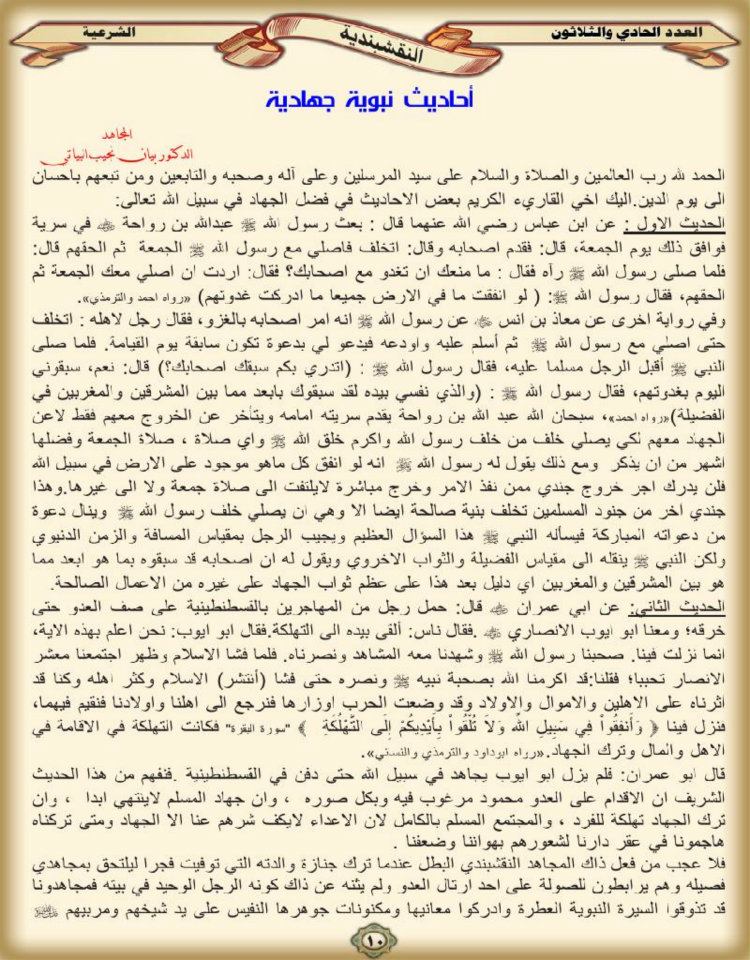 العدد الحادي والثلاثون
النقشبندية
الشرعية
أحاديث نبوية جهادية
المجاهد
الدكتور بيان نجيب البياتي
الحمد لله رب العالمين والصلاة والسلام على سيد المرسلين وعلى آله وصحبه والتابعين ومن تبعهم باحسان
الى يوم الدين.اليك اخي القاريء الكريم بعض الاحاديث في فضل الجهاد في سبيل الله تعالى:
الحديث الاول : عن ابن عباس رضي الله عنهما قال : بعث رسول الله ﷺ عبدالله بن رواحة في سرية
فوافق ذلك يوم الجمعة، قال: فقدم اصحابه وقال: اتخلف فاصلي مع رسول الله ﷺ الجمعة ثم الحقهم قال:
فلما صلى رسول الله ﷺ رآه فقال : ما منعك ان تغدو مع اصحابك؟ فقال: اردت ان اصلي معك الجمعة ثم
الحقهم، فقال رسول الله ﷺ: ( لو انفقت ما في الارض جميعا ما ادركت غدوتهم) «رواه احمد والترمذي».
وفي رواية اخرى عن معاذ بن انس عن رسول الله ﷺ انه امر اصحابه بالغزو، فقال رجل لاهله : اتخلف
حتى اصلي مع رسول الله ﷺ ثم أسلم عليه واودعه فيدعو لي بدعوة تكون سابقة يوم القيامة. فلما صلى
النبي ﷺ أقبل الرجل مسلما عليه، فقال رسول الله ﷺ : (اتدري بكم سبقك اصحابك؟) قال: نعم، سبقوني
اليوم بغدوتهم، فقال رسول الله ﷺ : (والذي نفسي بيده لقد سبقوك بابعد مما بين المشرقين والمغربين في
الفضيلة)«رواه احمد»، سبحان الله عبد الله بن رواحة يقدم سريته امامه ويتأخر عن الخروج معهم فقط لاعن
الجهاد معهم لكي يصلي خلف من خلف رسول الله واكرم خلق الله ﷺ واي صلاة ، صلاة الجمعة وفضلها
اشهر من ان يذكر ومع ذلك يقول له رسول الله ﷺ انه لو انفق كل ماهو موجود على الارض في سبيل الله
فلن يدرك اجر خروج جندي ممن نفذ الامر وخرج مباشرة لايلتفت الى صلاة جمعة ولا الى غيرها.وهذا
جندي اخر من جنود المسلمين تخلف بنية صالحة ايضا الا وهي ان يصلي خلف رسول الله ﷺ وينال دعوة
من دعواته المباركة فيسأله النبي ﷺ هذا السؤال العظيم ويجيب الرجل بمقياس المسافة والزمن الدنيوي
ولكن النبي ﷺ ينقله الى مقياس الفضيلة والثواب الاخروي ويقول له ان اصحابه قد سبقوه بما هو ابعد مما
هو بين المشرقين والمغربين اي دليل بعد هذا على عظم ثواب الجهاد على غيره من الاعمال الصالحة.
الحديث الثاني: عن ابي عمران قال: حمل رجل من المهاجرين بالقسطنطينية على صف العدو حتى
خرقه؛ ومعنا ابو ايوب الانصاري .فقال ناس: ألقى بيده الى التهلكة.فقال ابو ايوب: نحن اعلم بهذه الاية،
انما نزلت فينا. صحبنا رسول الله ﷺ وشهدنا معه المشاهد ونصرناه. فلما فشا الاسلام وظهر اجتمعنا معشر
الانصار تحببا؛ فقلنا:قد اكرمنا الله بصحبة نبيه ﷺ ونصره حتى فشا (أنتشر) الاسلام وكثر اهله وكنا قد
اثرناه على الاهلين والاموال والاولاد وقد وضعت الحرب اوزارها فنرجع الى اهلنا واولادنا فنقيم فيهما،
فنزل فينا ﴿ وَأَنفِقُواْ فِي سَبِيلِ اللَّهِ وَلَا تُلْقُواْ بِأَيْدِيكُمْ إِلَى التَّهْلُكَةِ ﴾ "سورة البقرة" فكانت التهلكة في الاقامة في
الاهل والمال وترك الجهاد.«رواه ابوداود والترمذي والنسائي».
قال ابو عمران: فلم يزل ابو ايوب يجاهد في سبيل الله حتى دفن في القسطنطينية .فنفهم من هذا الحديث
الشريف ان الاقدام على العدو محمود مرغوب فيه وبكل صوره ، وان جهاد المسلم لاينتهي ابدا ، وان
ترك الجهاد تهلكة للفرد ، والمجتمع المسلم بالكامل لان الاعداء لايكف شرهم عنا الا الجهاد ومتى تركناه
هاجمونا في عقر دارنا لشعورهم بهواننا وضعفنا .
فلا عجب من فعل ذاك المجاهد النقشبندي البطل عندما ترك جنازة والدته التي توفيت فجرا ليلتحق بمجاهدي
فصيله وهم يرابطون للصولة على احد ارتال العدو ولم يثنه عن ذاك كونه الرجل الوحيد في بيته فمجاهدونا
قد تذوقوا السيرة النبوية العطرة وادركوا معانيها ومكنونات جوهرها النفيس على يد شيخهم ومربيهم
١٠